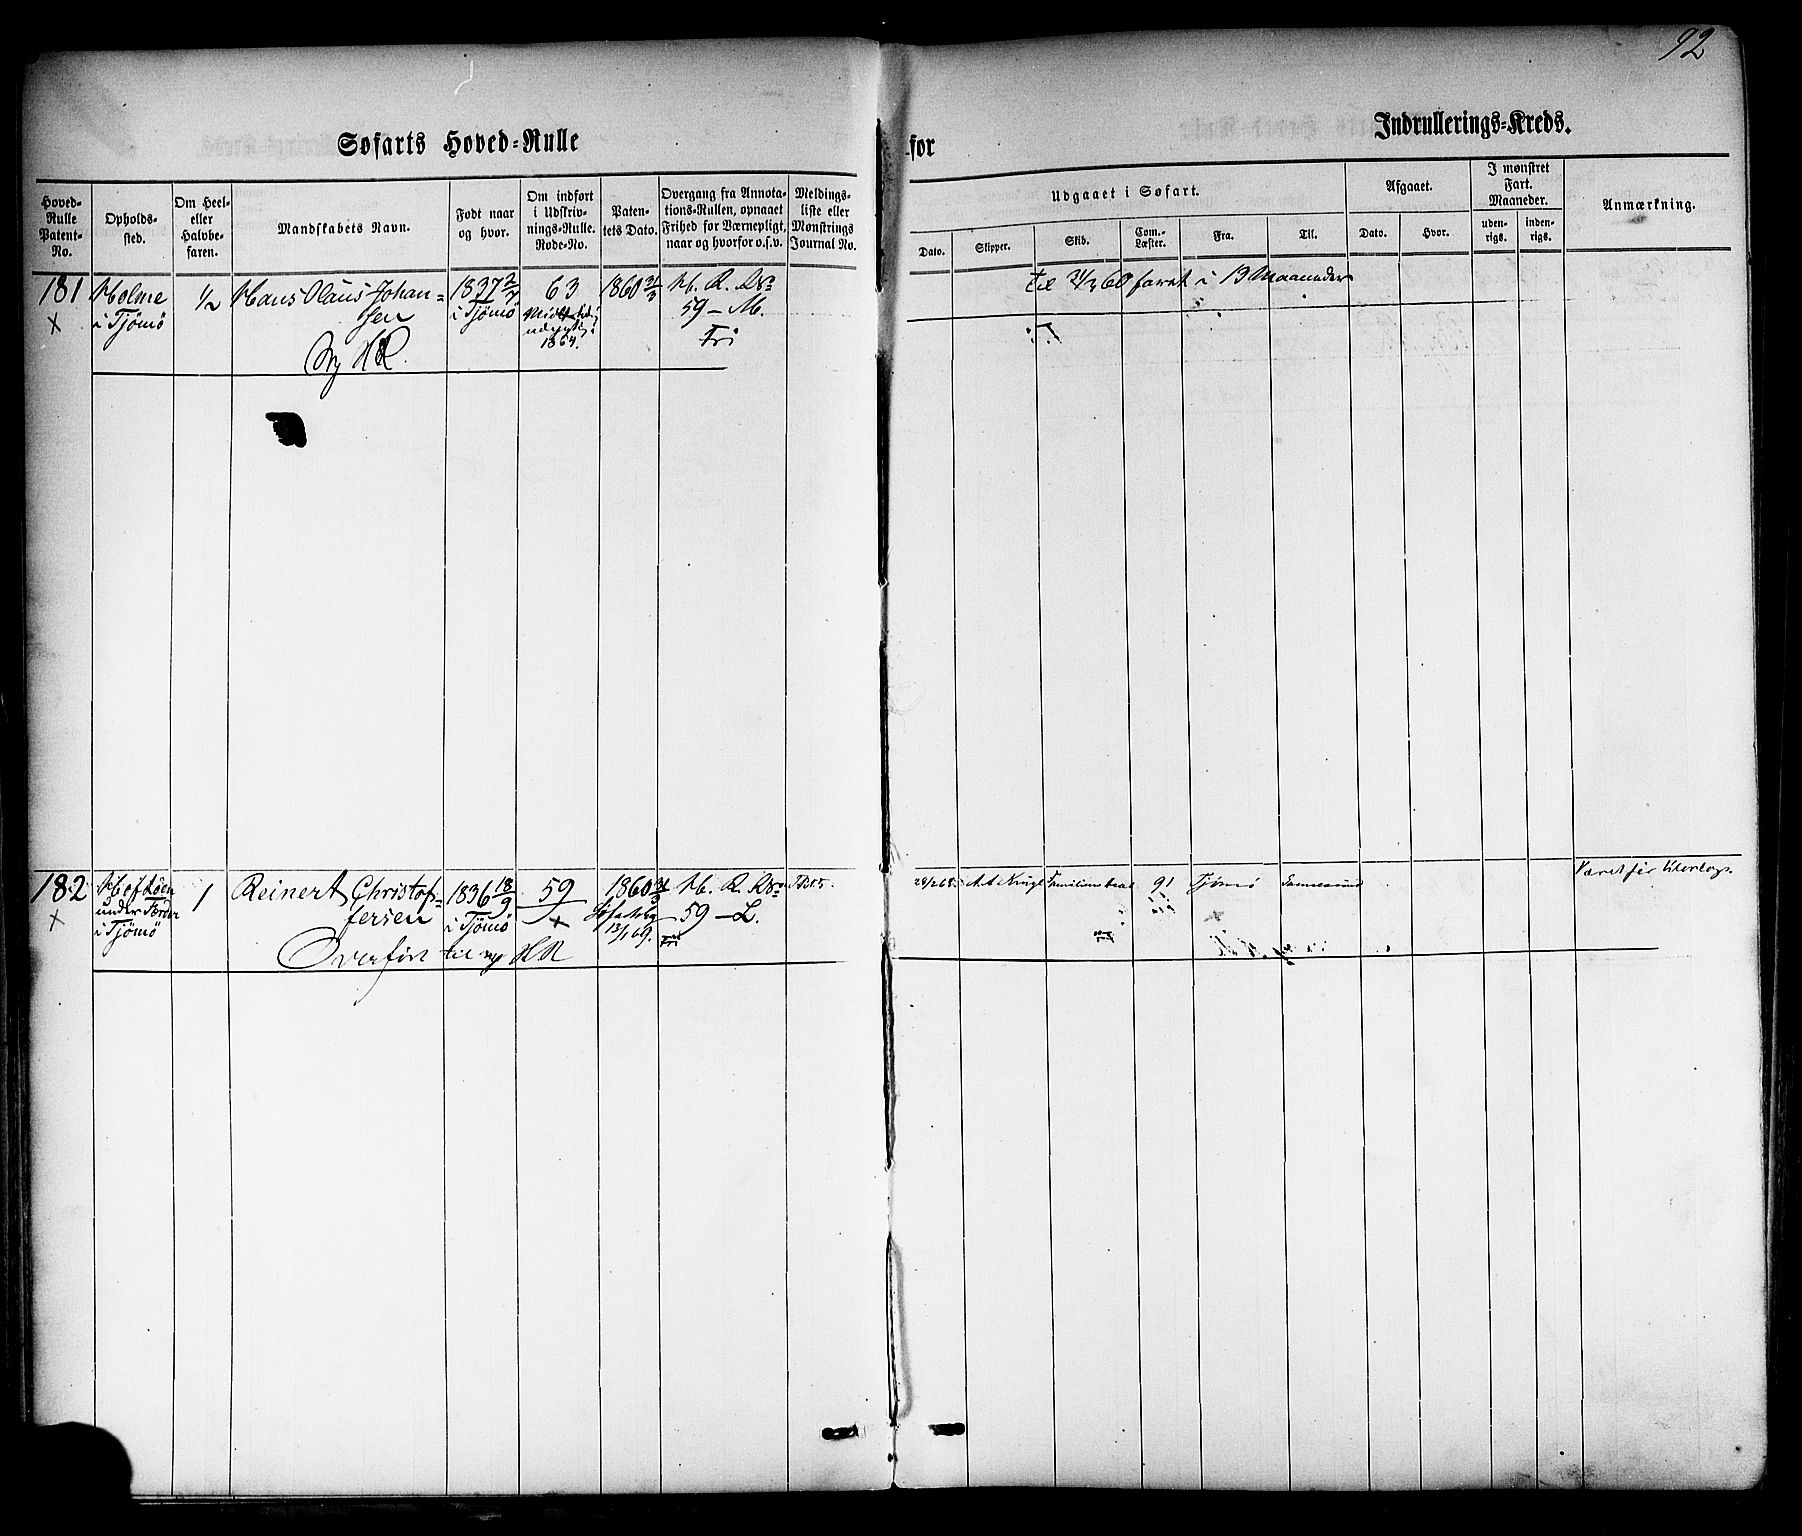 92
Søfarts Hoved-Rulle
for
Indrullerings-Kreds.
Hoved-Rulle Patent-No.
Opholdssted.
Om Heel- eller Halvbefaren.
Mandskabets Navn.
Født naar og hvor.
Om indført i Udskrivnings-Rulle. Rode-No.
Patentets Dato.
Overgang fra Annotations-Rullen, opnaaet Frihed for Værnepligt, naar og hvorfor o.s.v.
Meldingsliste eller Mønstrings Journal No.
Udgaaet i Søfart.
Dato.
Skipper.
Skib.
Com.-Læster.
Fra.
Til.
Afgaaet.
Dato.
Hvor.
I mønstret Fart. Maaneder.
udenrigs.
indenrigs.
Anmærkning.
181 Holme ½ Hans Olaus Johan- 1837 2/7 63 1860 31/3 H. R. No
til 31/3 60 faret i 13 Maaneder
x i Tjömö sen i Tjömö 59 – M.
1864. Fri
Ny HR
182 1 Reinert Christof- 1836 18/9 59 1860 31/3 H. R. No
91 Tjömö Været før
x under Færder fersen i Tjömö x 13/1 69. 59 – L.
i Tjömö Fri
Overført til ny HR